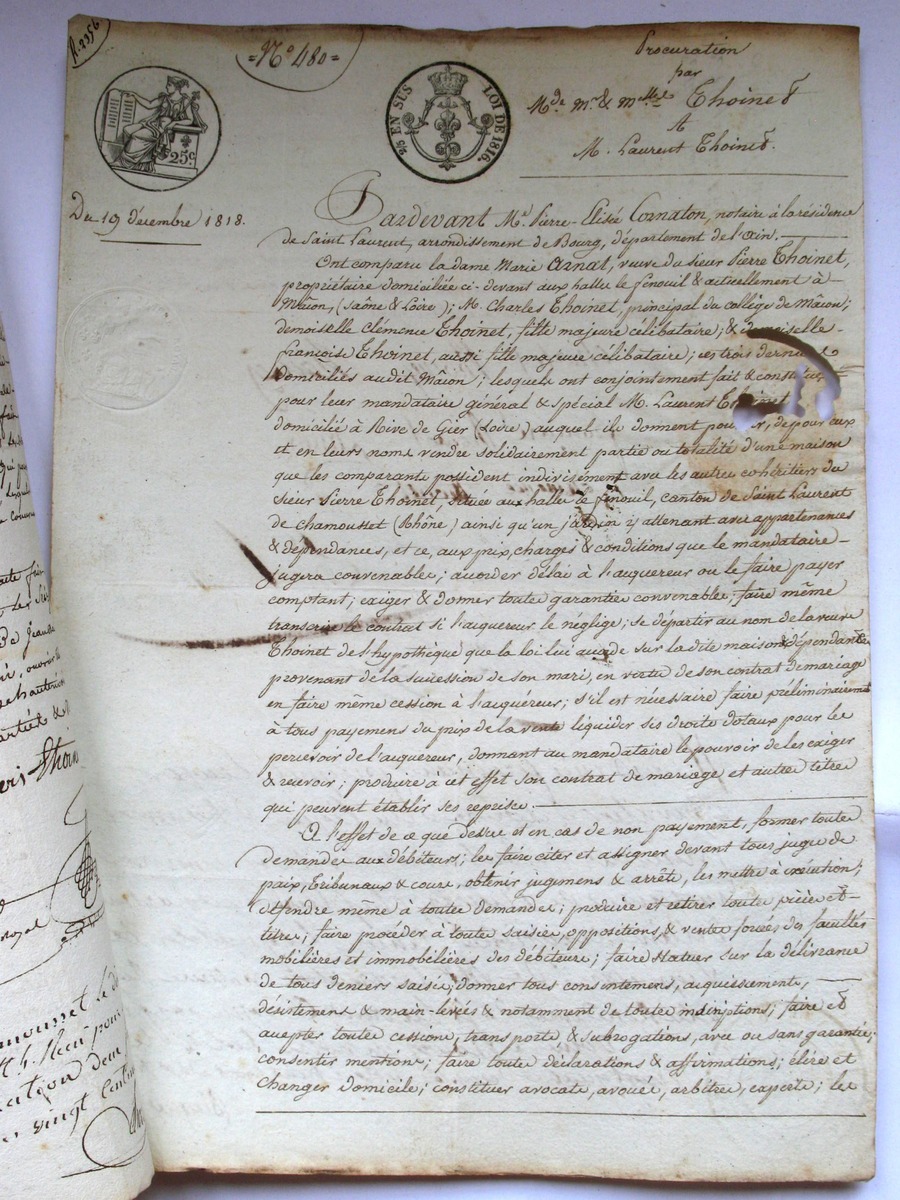 R. 2356
= N.º 480 =
Procuration
par
M.de M.r & M.elles Thoinet
A
M. Laurent Thoinet.
25 EN SUS
LOI DE 1816.
25 c
Du 19 décembre 1818.
Pardevant M.e Pierre-Elisée Cornaton, notaire à la résidence
de Saint Laurent, arrondissement de Bourg, département de l'ain.
Ont comparu la dame Marie Arnal, veuve du sieur Pierre Thoinet,
propriétaire domiciliée ci-devant aux halles le fenouil & actuellement à
Mâcon, (saône & Loire); M. Charles Thoinet, principal du collège de Mâcon;
demoiselle Clémence Thoinet, fille majeure célibataire; & demoiselle
françoise Thoinet, aussi fille majeure célibataire; ces trois derniers
domiciliés audit Mâcon; lesquels ont conjointement fait & constitué
pour leur mandataire général & spécial M. Laurent Thoinet
domicilié à Rive de Gier (Loire) auquel ils donnent pouvoir, de pour eux
et en leurs noms vendre solidairement partie ou totalité d'une maison
que les comparants possèdent indivisément avec les autres cohéritiers du
sieur Pierre Thoinet, située aux halles le fenouil, canton de Saint Laurent
de chamousset (Rhône) ainsi qu'un jardin y attenant avec appartenances
& dépendances, et ce, aux prix, charges & conditions que le mandataire
jugera convenables; accorder délai à l'acquereur ou le faire payer
comptant; exiger & donner toute garantie convenable, faire même
transcrire le contrat si l'acquereur le néglige; se départir au nom de la veuve
Thoinet de l'hypothèque que la loi lui accorde sur la dite maison & dépendances
provenant de la succession de son mari, en vertu de son contrat de mariage
en faire même cession à l'acquéreur; s'il est nécessaire faire préliminairement
à tous payemens du prix de la vente liquider ses droits dotaux pour les
percevoir de l'acquereur, donnant au mandataire le pouvoir de les exiger
& recevoir; produire à cet effet son contrat de mariage et autres titres
qui peuvent établir ses reprises.
A l'effet de ce que dessus et en cas de non payement, former toutes
demandes aux débiteurs; les faire citer et assigner devant tous juges de
paix, tribunaux & cours, obtenir jugemens & arrêts, les mettre à exécution;
défendre même à toutes demandes; produire et retirer toutes pièces et
titres; faire procéder à toutes saisies, oppositions, & ventes forcées des facultés
mobilières et immobilières des débiteurs; faire statuer sur la délivrance
de tous deniers saisis, donner tous consentemens, acquiescemens,
désistemens & main-levées & notamment de toutes inscriptions; faire et
accepter toutes cessions, transports, & subrogations, avec ou sans garantie;
consentir mentions; faire toutes déclarations & affirmations; élire et
changer domicile; constituer avocats, avoués, arbitres, experts; les